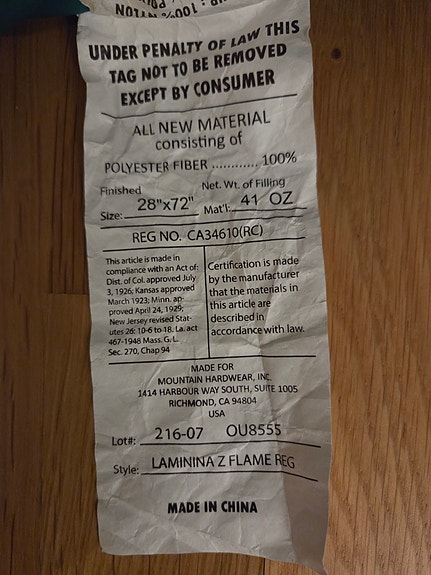 100% NYLON
UNDER PENALTY OF LAW THIS
TAG NOT TO BE REMOVED
EXCEPT BY CONSUMER
ALL NEW MATERIAL
consisting of
POLYESTER FIBER ............ 100%
Finished Net. Wt. of Filling
Size: 28"x72" Mat'l: 41 OZ
REG NO. CA34610(RC)
This article is made in
compliance with an Act of:
Dist. of Col. approved July
3, 1926; Kansas approved
March 1923; Minn. ap-
proved April 24, 1929;
New Jersey revised Stat-
utes 26: 10-6 to 18. La. act
467-1948 Mass. G. L.
Sec. 270, Chap 94
Certification is made
by the manufacturer
that the materials in
this article are
described in
accordance with law.
MADE FOR
MOUNTAIN HARDWEAR, INC.
1414 HARBOUR WAY SOUTH, SUITE 1005
RICHMOND, CA 94804
USA
Lot#: 216-07 OU8555
Style: LAMININA Z FLAME REG
MADE IN CHINA